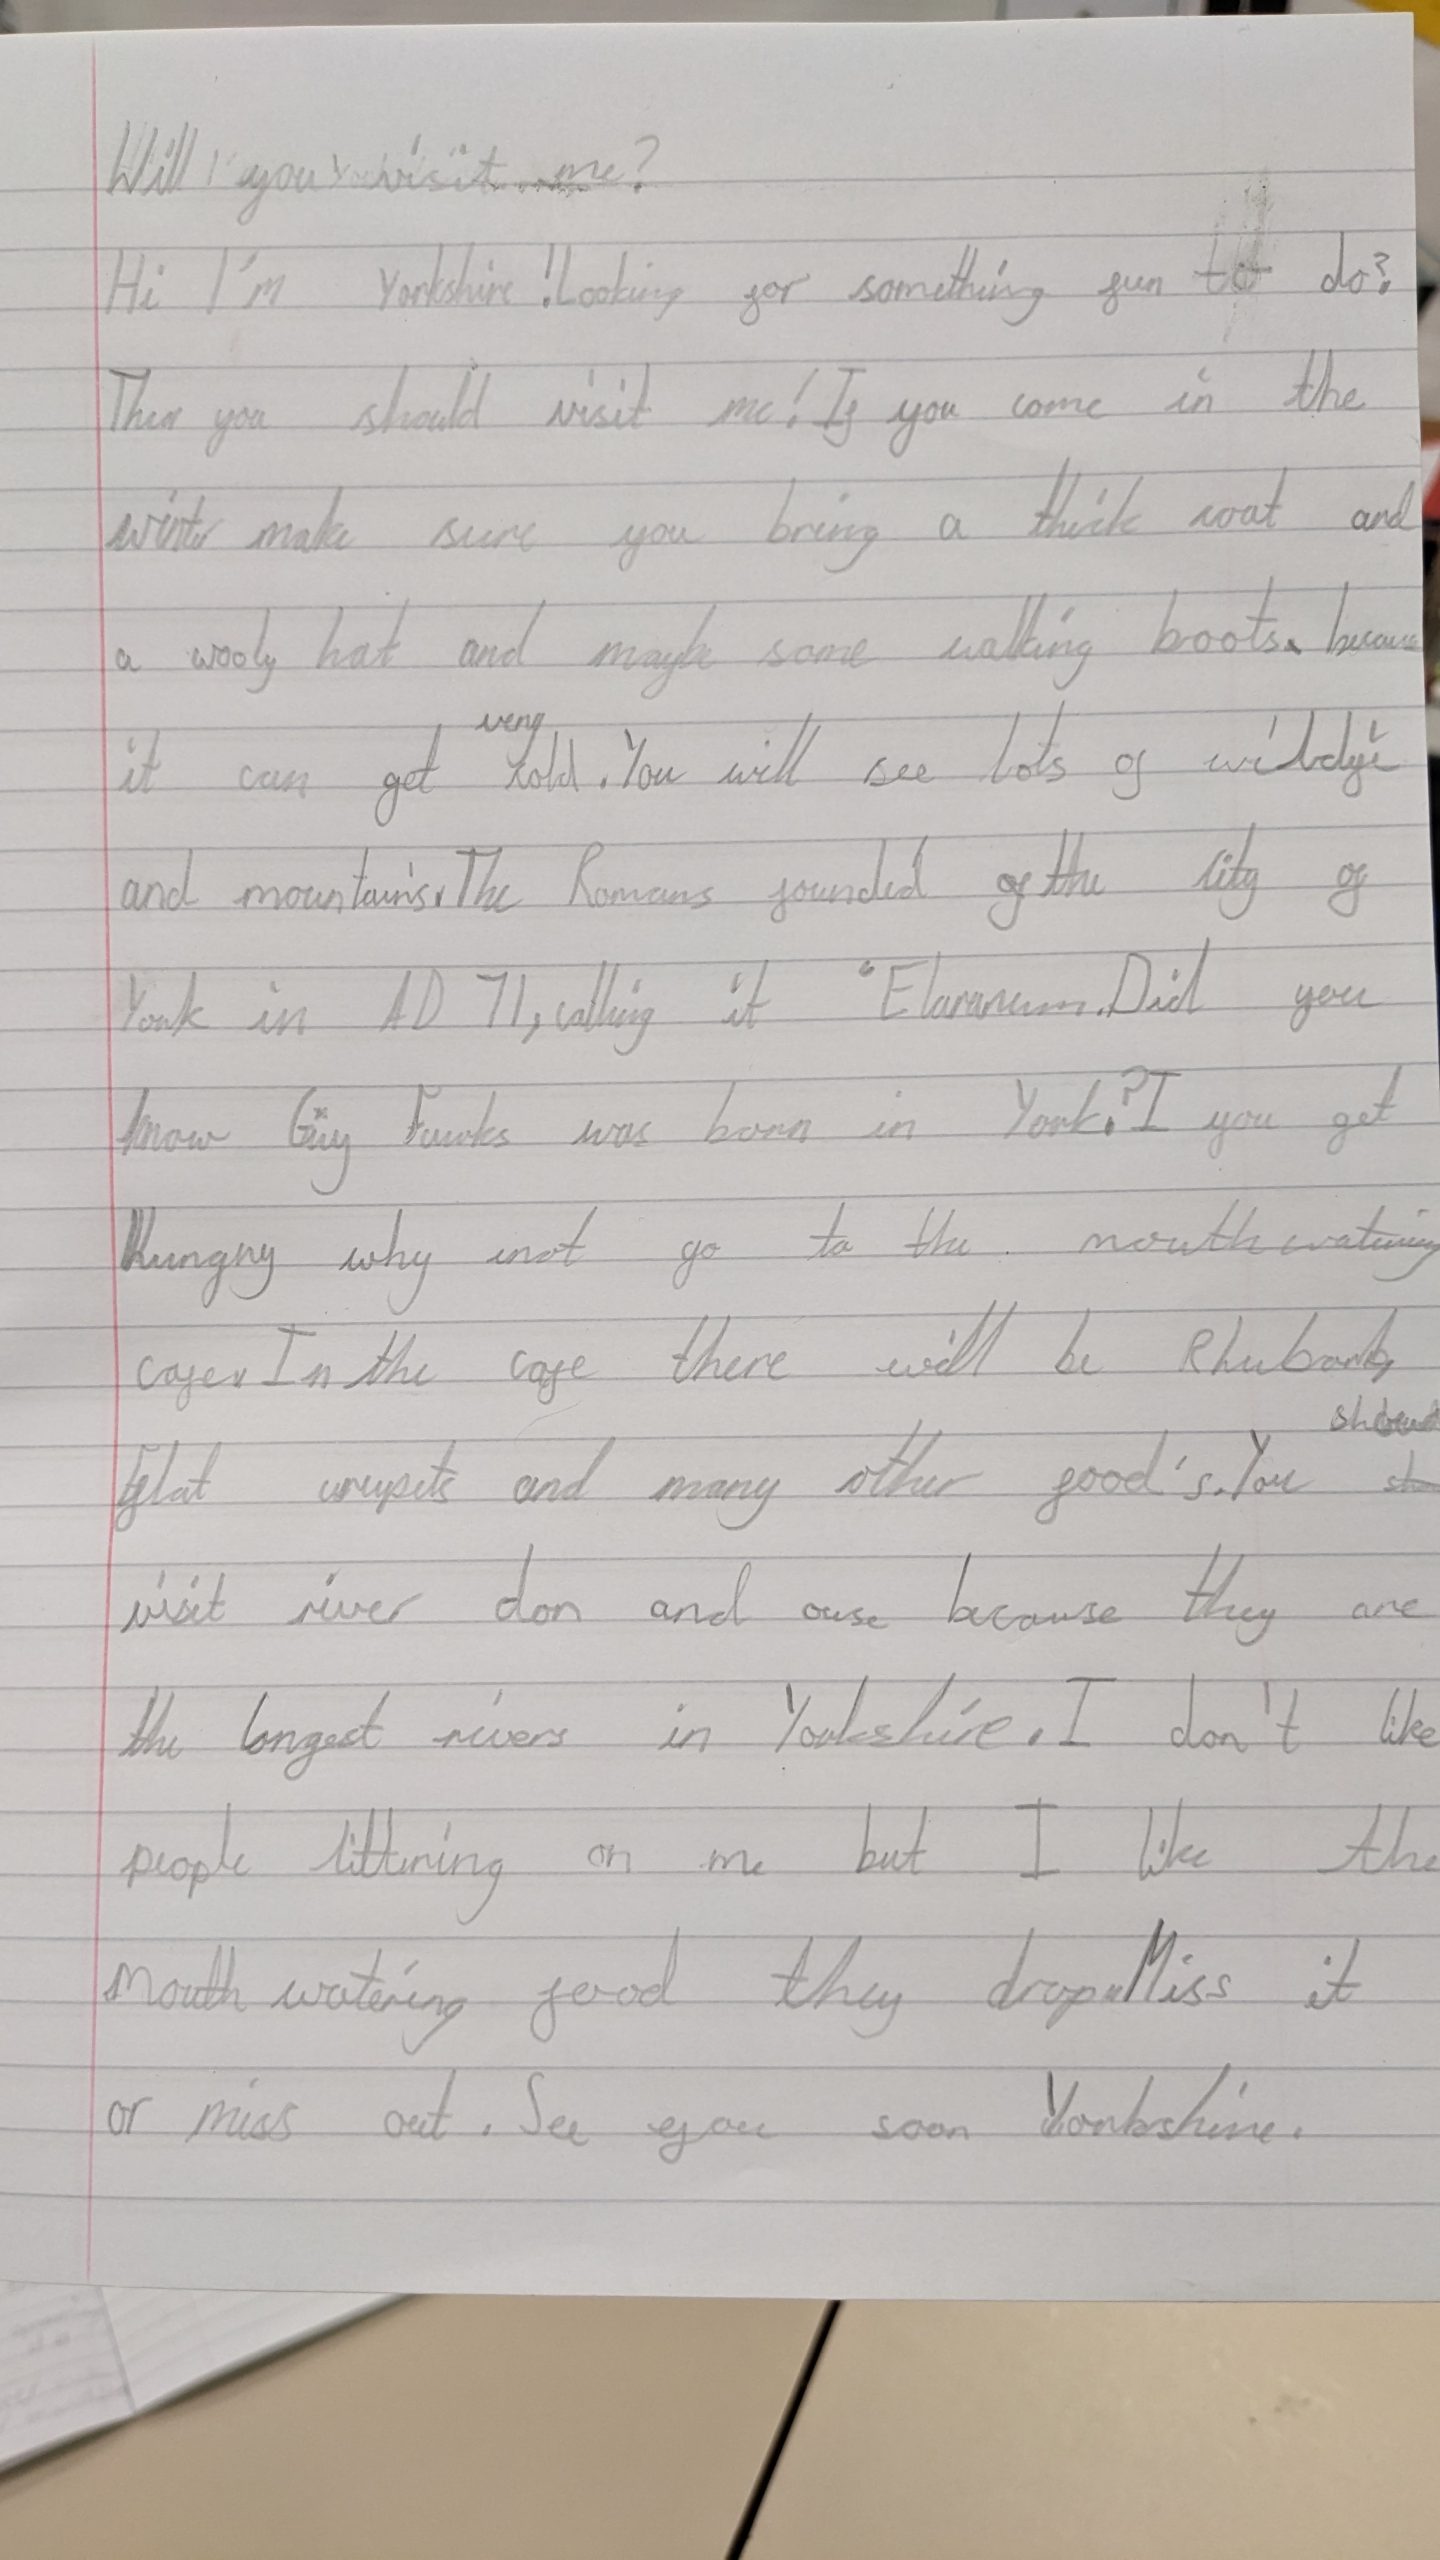 Will you visit me?
Hi I'm Yorkshire! Looking for something fun to do?
Then you should visit me! If you come in the
winter make sure you bring a thick coat and
a wooly hat and maybe some walking boots. because
it can get very cold. You will see lots of
and mountains. The Romans founded of the city of
York in AD 71, calling it "Did you
know Guy Fawks was born in York.? I you get
Hungry why not go to the mouthwatering
cafe. In the cafe there will be Rhubarb,
flat and many other food's. You should
visit river don and ouse because they are
the longest rivers in Yorkshire. I don't like
people littering on me but I like the
mouth watering food they drop. Miss it
or miss out. See you soon Yorkshire.